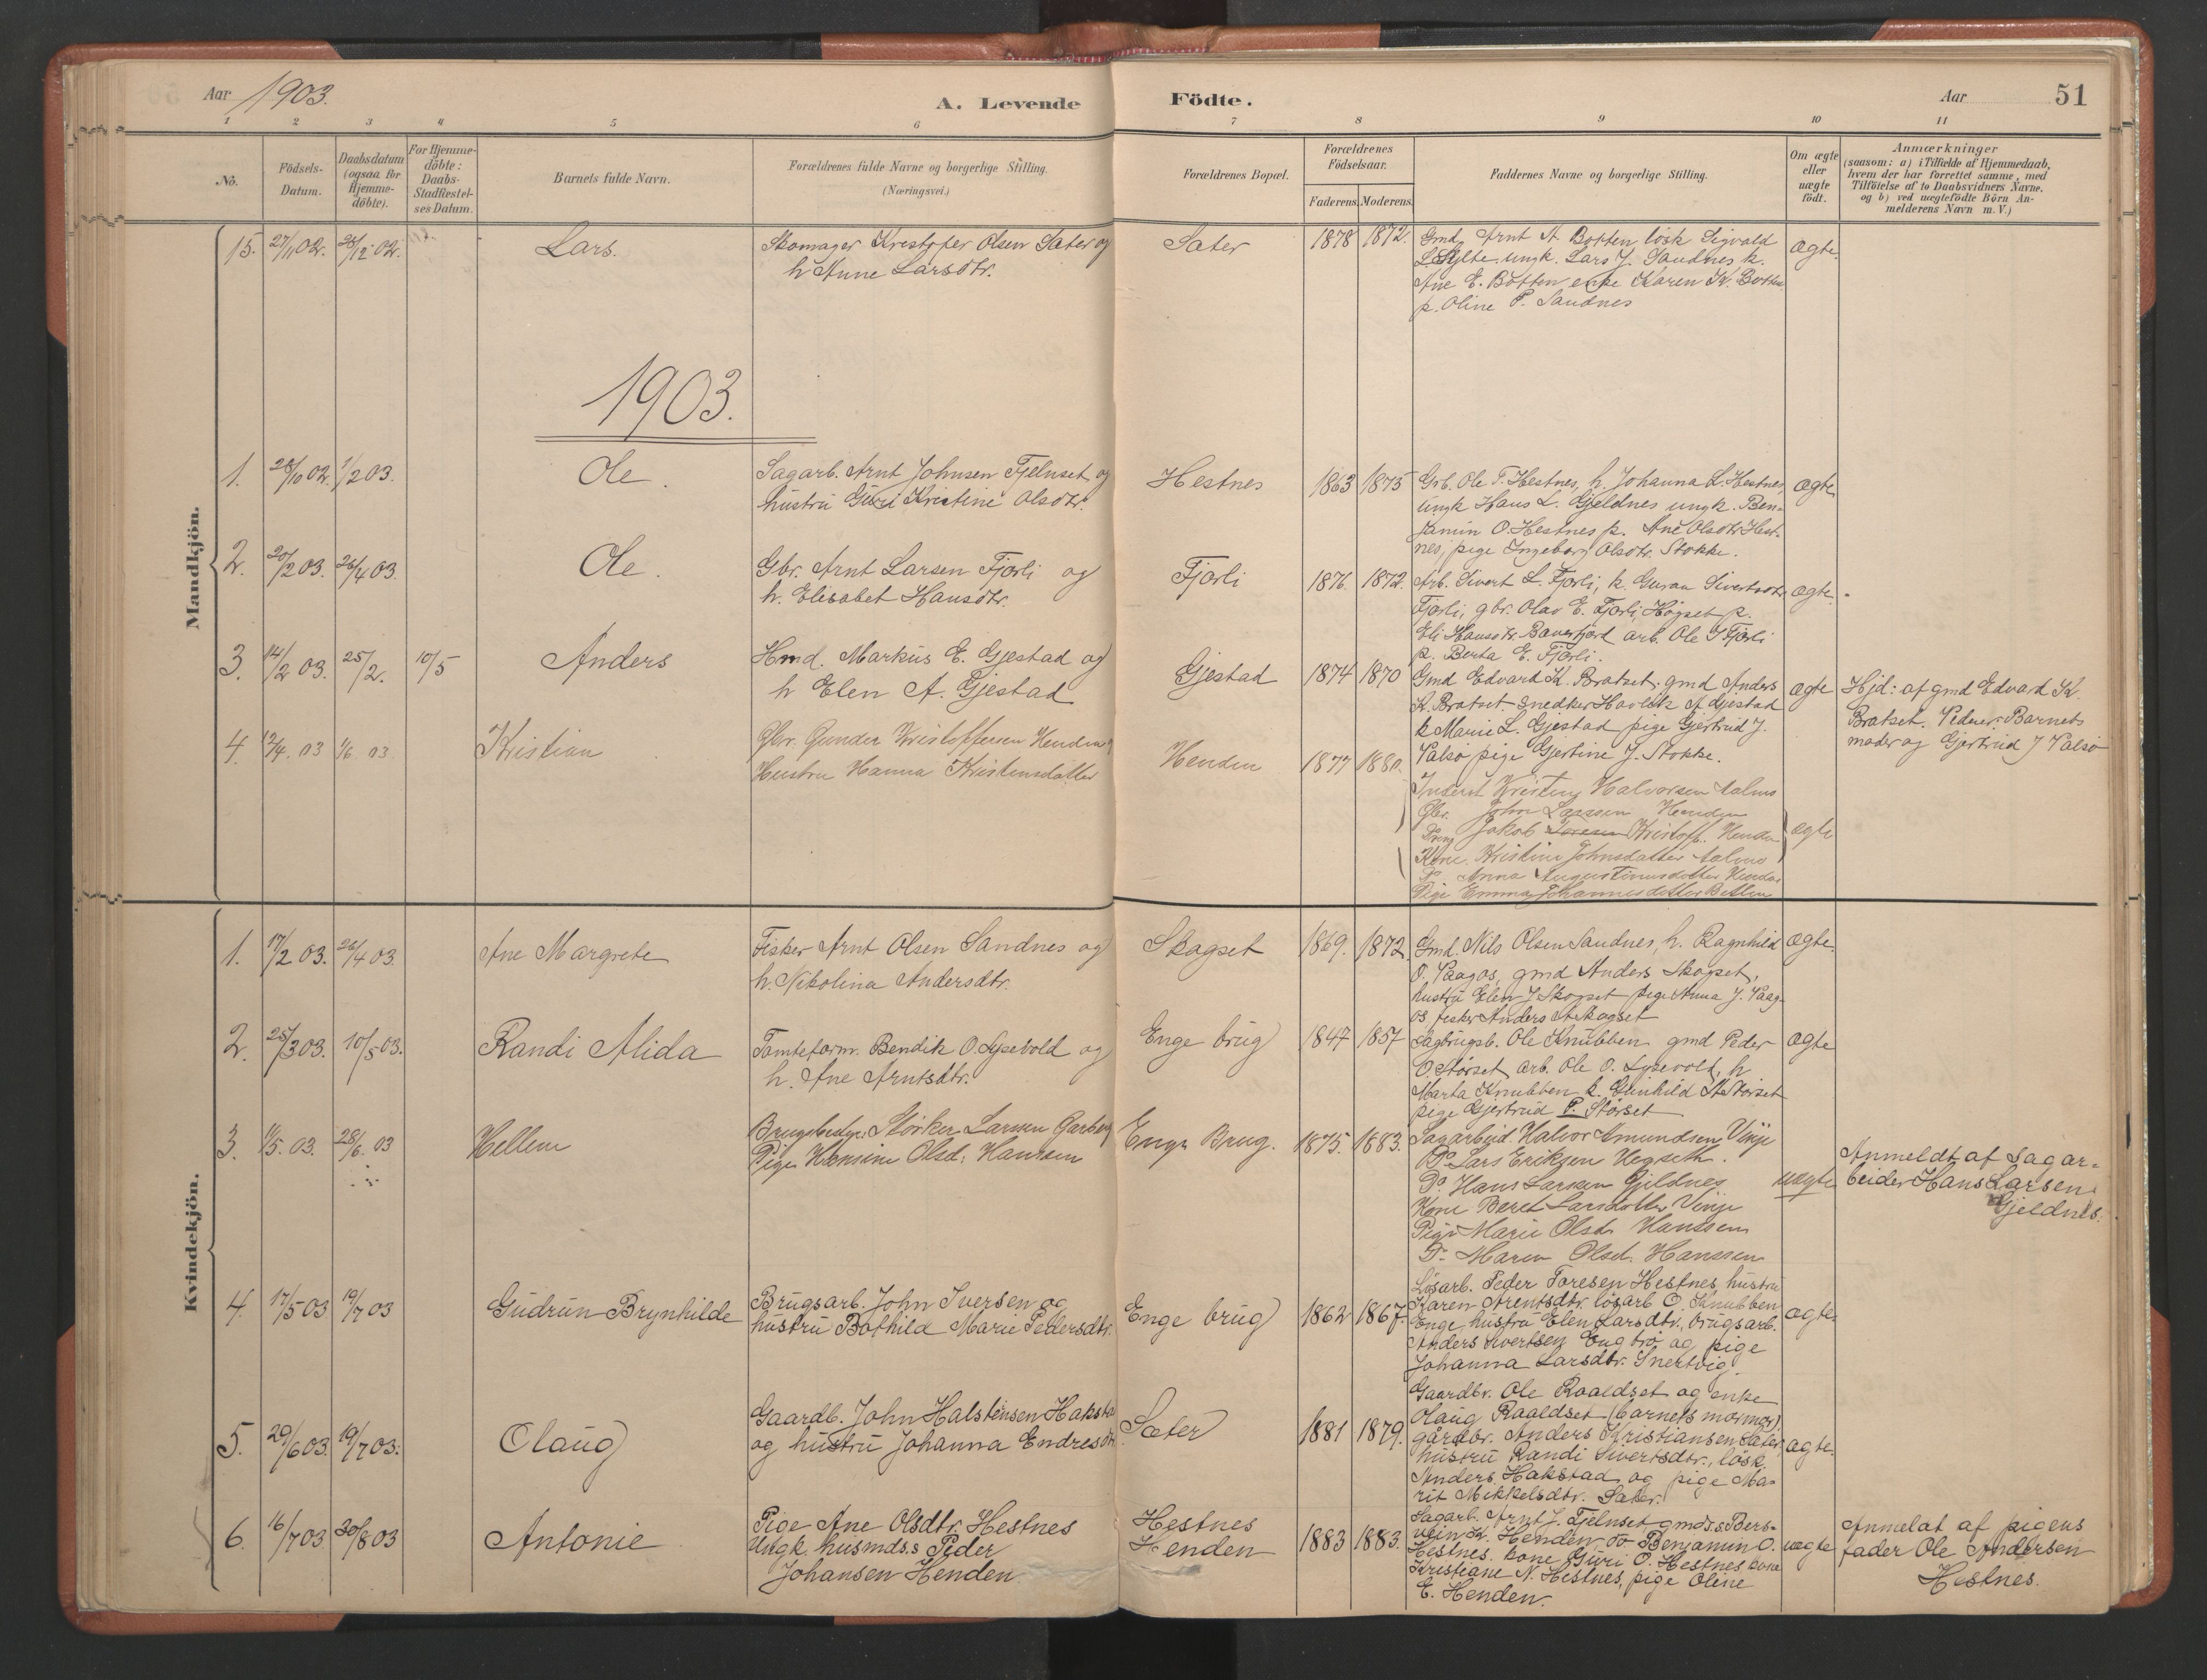 Aar 1903.
A. Levende Födte.
Aar
51
1 2 3 4 5 6 7 8 9 10 11
No.
Födsels-
Datum.
Daabsdatum
(ogsaa for
Hjemme-
döbte).
For Hjemme-
döbte:
Daabs-
Stadfæstel-
ses Datum.
Barnets fulde Navn.
Forældrenes fulde Navne og borgerlige Stilling.
(Næringsvei.)
Forældrenes Bopæl.
Forældrenes
Födselsaar.
Faderens. Moderens.
Faddernes Navne og borgerlige Stilling.
Om ægte
eller
uægte
födt.
Anmærkninger
(saasom: a) i Tilfælde af Hjemmedaab,
hvem der har forrettet samme, med
Tilföielse af to Daabsvidners Navne.
og b) ved uægtefödte Börn An-
melderens Navn m. V.)
Mandkjön.
15. 27/11 02. 28/12 02. Lars.
Skomager Kristofer Olsen Sæter og
h Anne Larsdtr.
Sæter
1878 1872.
Gmd. Arnt A Botten løsk Sigvald
L. Sylte. ungk. Lars J. Sandnes k.
Ane E. Botten enke Karen K. Botten
p. Oline P. Sandnes
ægte.
1903.
1. 28/10 02. 1/2 03. Ole.
Sagarb. Arnt Johnsen Fjelnset og
hustru Guri Kristine Olsdtr.
Hestnes
1863 1875
Grb. Ole T. Hestnes, h. Johanna L. Hestnes,
ungk Hans L. Gjeldnes ungk. Ben-
jamin O. Hestnes p. Ane Olsdtr Hest-
nes, pige Ingeborg Olsdtr. Stokke.
ægte
2. 20/2 03. 26/4 03. Ole.
Gbr. Arnt Larsen Fjørli og
h. Elisabet Hansdtr.
Fjørli
1876. 1872.
Arb. Sivert L. Fjørli, k. Guran Sivertsdtr
Fjørli, gbr. Olav E. Fjørli, Høgset p.
Eli Hansdtr. Bøverfjord arb. Ole J Fjørli
p. Berta E. Fjørli.
ægte.
3. 14/2 03. 25/2. 10/5 Anders
Hmd. Markus E. Gjestad og
h Elen A. Gjestad
Gjestad
1874 1870
Gmd Edvard K. Bratset. gmd Anders
K. Bratset. Snedker Havlik A. Gjestad
k Marie L. Gjestad pige Gjertrud J.
Valsø pige Gjertine J. Stokke.
ægte
Hjd: af gmd Edvard K.
Bratset. Vidner: Barnets
moder og Gjertrud J Valsø
4. 12/4. 03 1/6 03. Kristian
Gbr. Gunder Kristoffersen Henden og
Hustru Hanna Kristensdatter
Henden
1877 1880.
Inderst Kristen Halvorsen Aalmo
Gbr. John Larsen Henden
Dreng Jakob Kristoff. Henden
Kone Kristine Johnsdatter Aalmo
Do. Anna Augustinusdatter Henden
Pige Emma Johannesdatter Betten
ægte
Kvindekjön.
1. 17/2 03. 26/4 03. Ane Margrete
Fisker Arnt Olsen Sandnes og
h. Nikolina Andersdtr.
Skogset
1869. 1872.
Gmd. Nils Olsen Sandnes, h. Ragnhild
O. Vaagos, gmd Anders Skogset,
hustru Elen J Skogset pige Anna J. Vaag-
os fisker Anders A Skogset
ægte.
2. 25/3 03. 10/5 03. Randi Alida
Tomteform. Bendik O. Lysevold og
h. Ane Arntsdtr.
Enge brug
1847 1857
Sagbrugsb. Ole Knubben gmd Peder
O. Størset, arb. Ole O. Lysevold, h
Marta Knubben k. Gunhild A Størset
pige Gjertrud P. Størset
ægte
3. 1/5. 03. 28/6. 03 Hellem
Brugsbestyr: Størker Larsen Garberg
Pige Hansine Olsd: Hanssen
Enge Brug.
1875. 1883.
Sagarbeid. Halvor Amundsen Vinje
Do Lars Eriksen Hegseth.
Do Hans Larsen Gjeldnes
Kone Beret Larsdatter Vinje
Pige Marie Olsd. Hanssen
Do Maren Olsd. Hanssen
uægte
Anmeldt af Sagar-
beider Hans Larsen
Gjeldnes.
4. 17/5 03 19/7 03 Gudrun Brynhilde
Brugsarb. John Iversen og
hustru Bothild Marie Pedersdtr.
Enge brug
1862 1867.
Løsarb. Peder Toresen Hestnes, hustru
Karen Arentsdtr. løsarb O. Knubben
Enge, hustru Elen Larsdtr., brugsarb.
Anders Sivertsen Engbrø og pige
Johanna Larsdtr. Snertvig
ægte
5. 29/6 03. 19/7 03. Olaug
Gaardb. John Halstensen Haksta
og hustru Johanna Endresdtr
Sæter
1881 1879.
Gaardbr. Ole Roaldset og enke
Olaug Roaldset (barnets mormor)
gårdbr. Anders Kristiansen Sæter,
hustru Randi Sivertsdtr., løsk.
Anders Hakstad og pige Ma-
rit Mikkelsdtr. Sæter.
ægte.
6. 16/7 03 30/8 03 Antonie
Pige Ane Olsdtr. Hestnes
Ungk. husmds.s Peder
Johansen Henden
Hestnes
Henden
1883 1883.
Sagarb. Arnt J. Fjelnset gmds.s. Bers-
vein K. Henden do Benjamin O.
Hestnes. kone Guri O. Hestnes kone
Kristiane N. Hestnes, pige Oline
E. Henden.
uægte
Anmeldt af pigens
fader Ole Andersen
Hestnes.